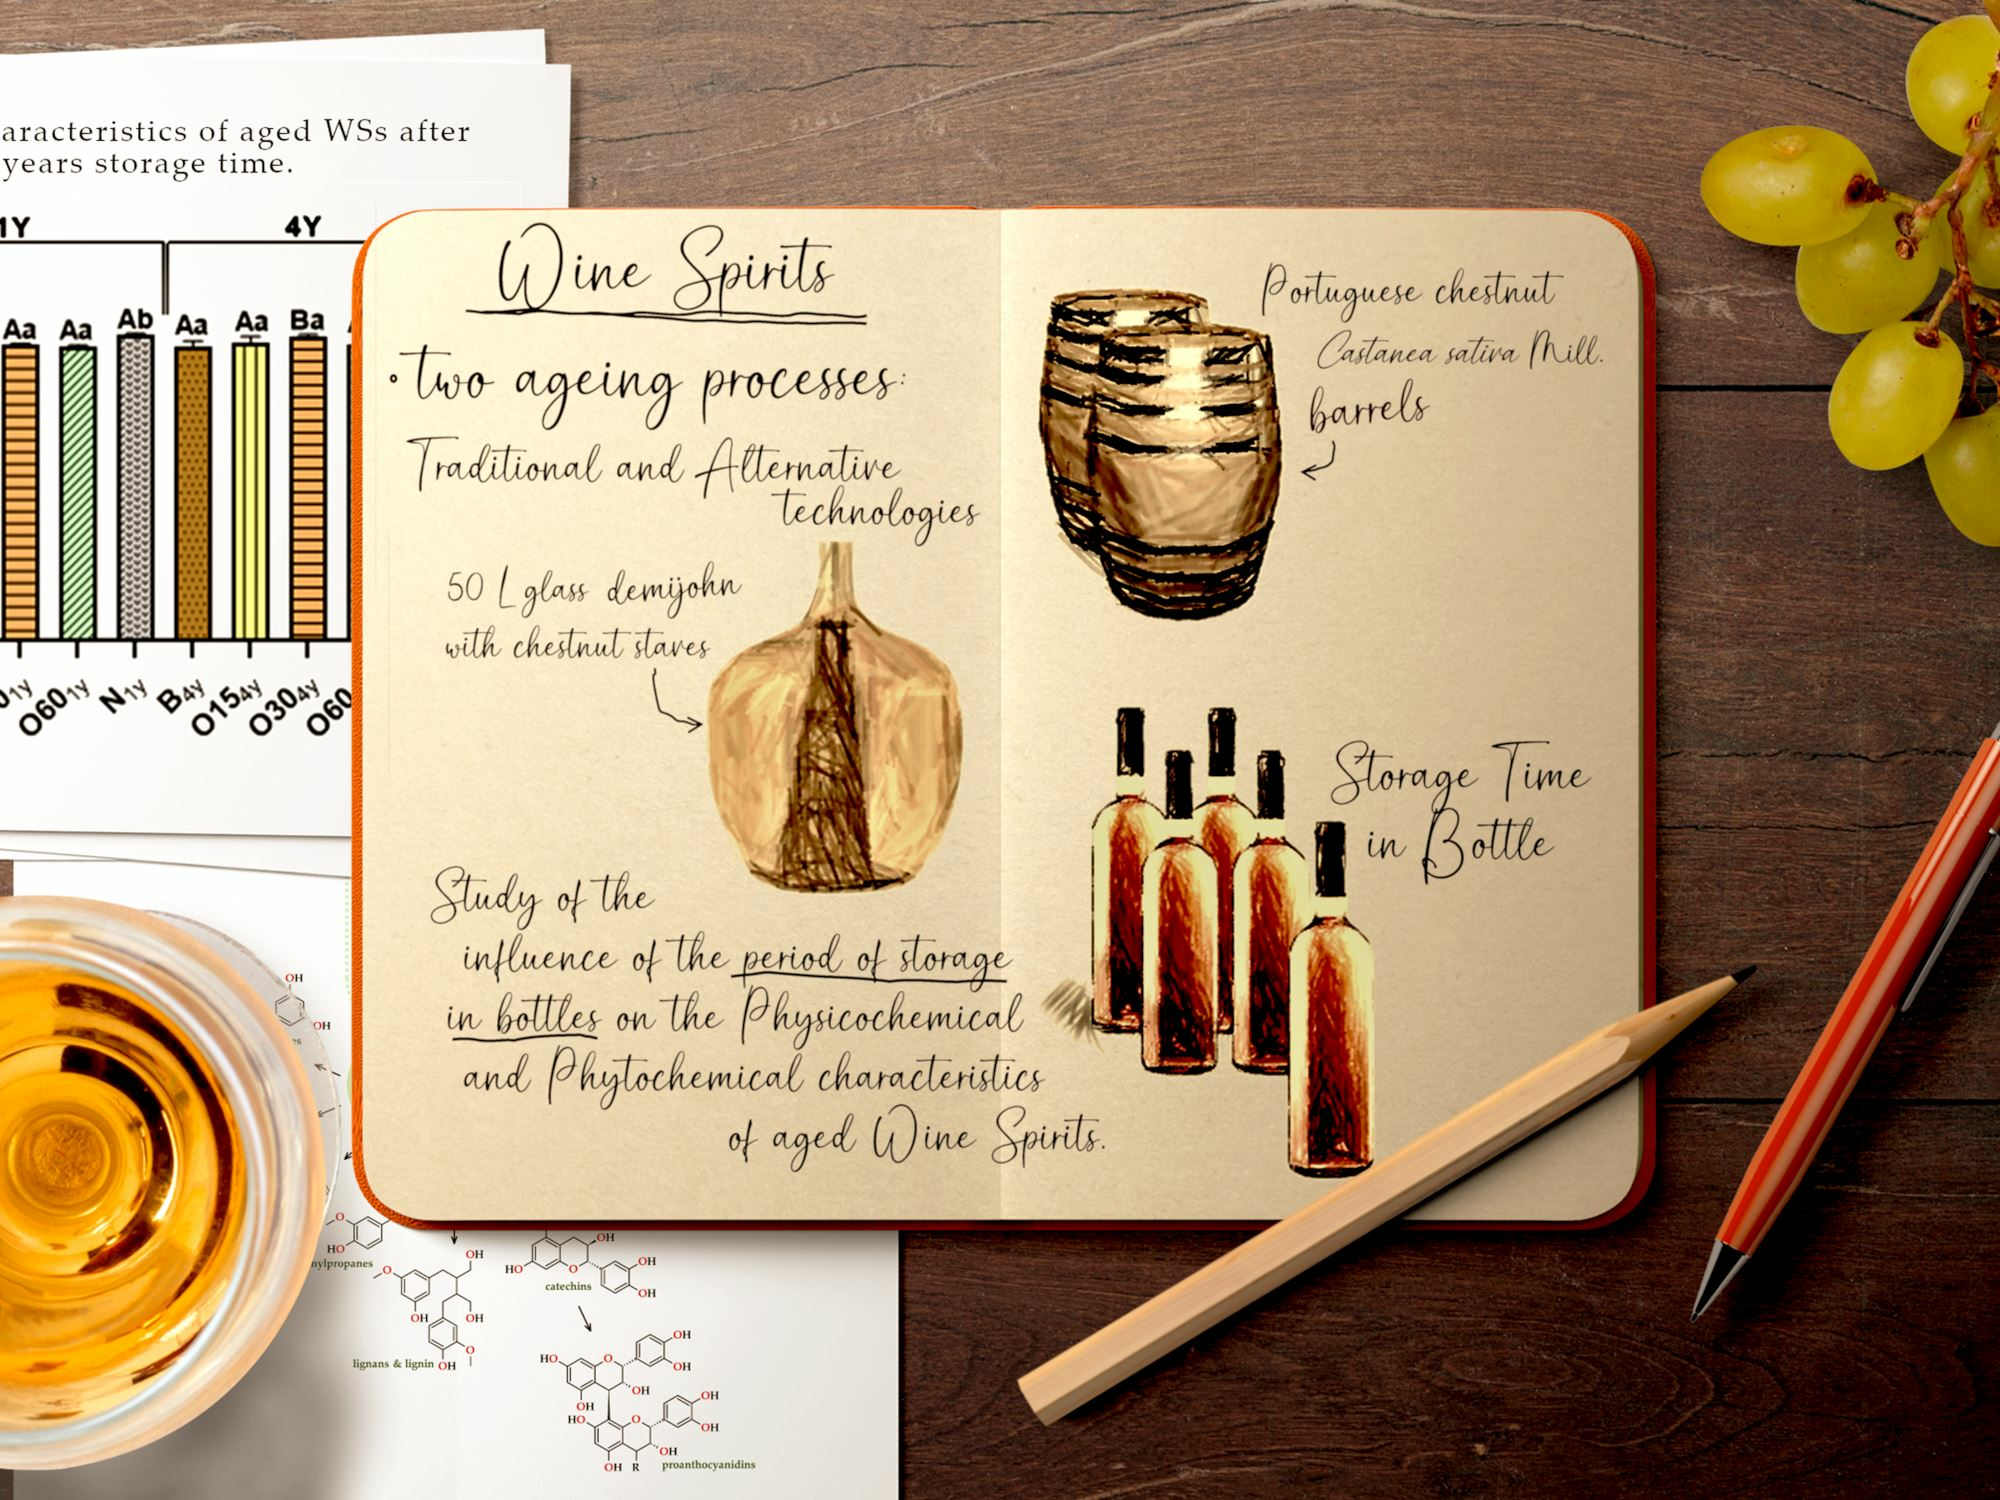 aracteristics of aged WSs after
years storage time.
1Y
4Y
Aa
Aa
Ab
Aa
Aa
Ba
O60 1y
N 1y
B 4y
O15 4y
O30 4y
O60
Wine Spirits
• two ageing processes:
Traditional and Alternative
technologies
50 L glass demijohn
with chestnut staves
Study of the
influence of the period of storage
in bottles on the Physicochemical
and Phytochemical characteristics
of aged Wine Spirits.
Portuguese chestnut
Castanea sativa Mill.
barrels
Storage Time
in Bottle
OH
OH
O
HO
nylpropanes
OH
O
OH
OH
O
OH
lignans & lignin
OH
HO
O
OH
OH
catechins
HO
O
OH
OH
OH
OH
HO
O
OH
OH
OH
OH
R
proanthocyanidins